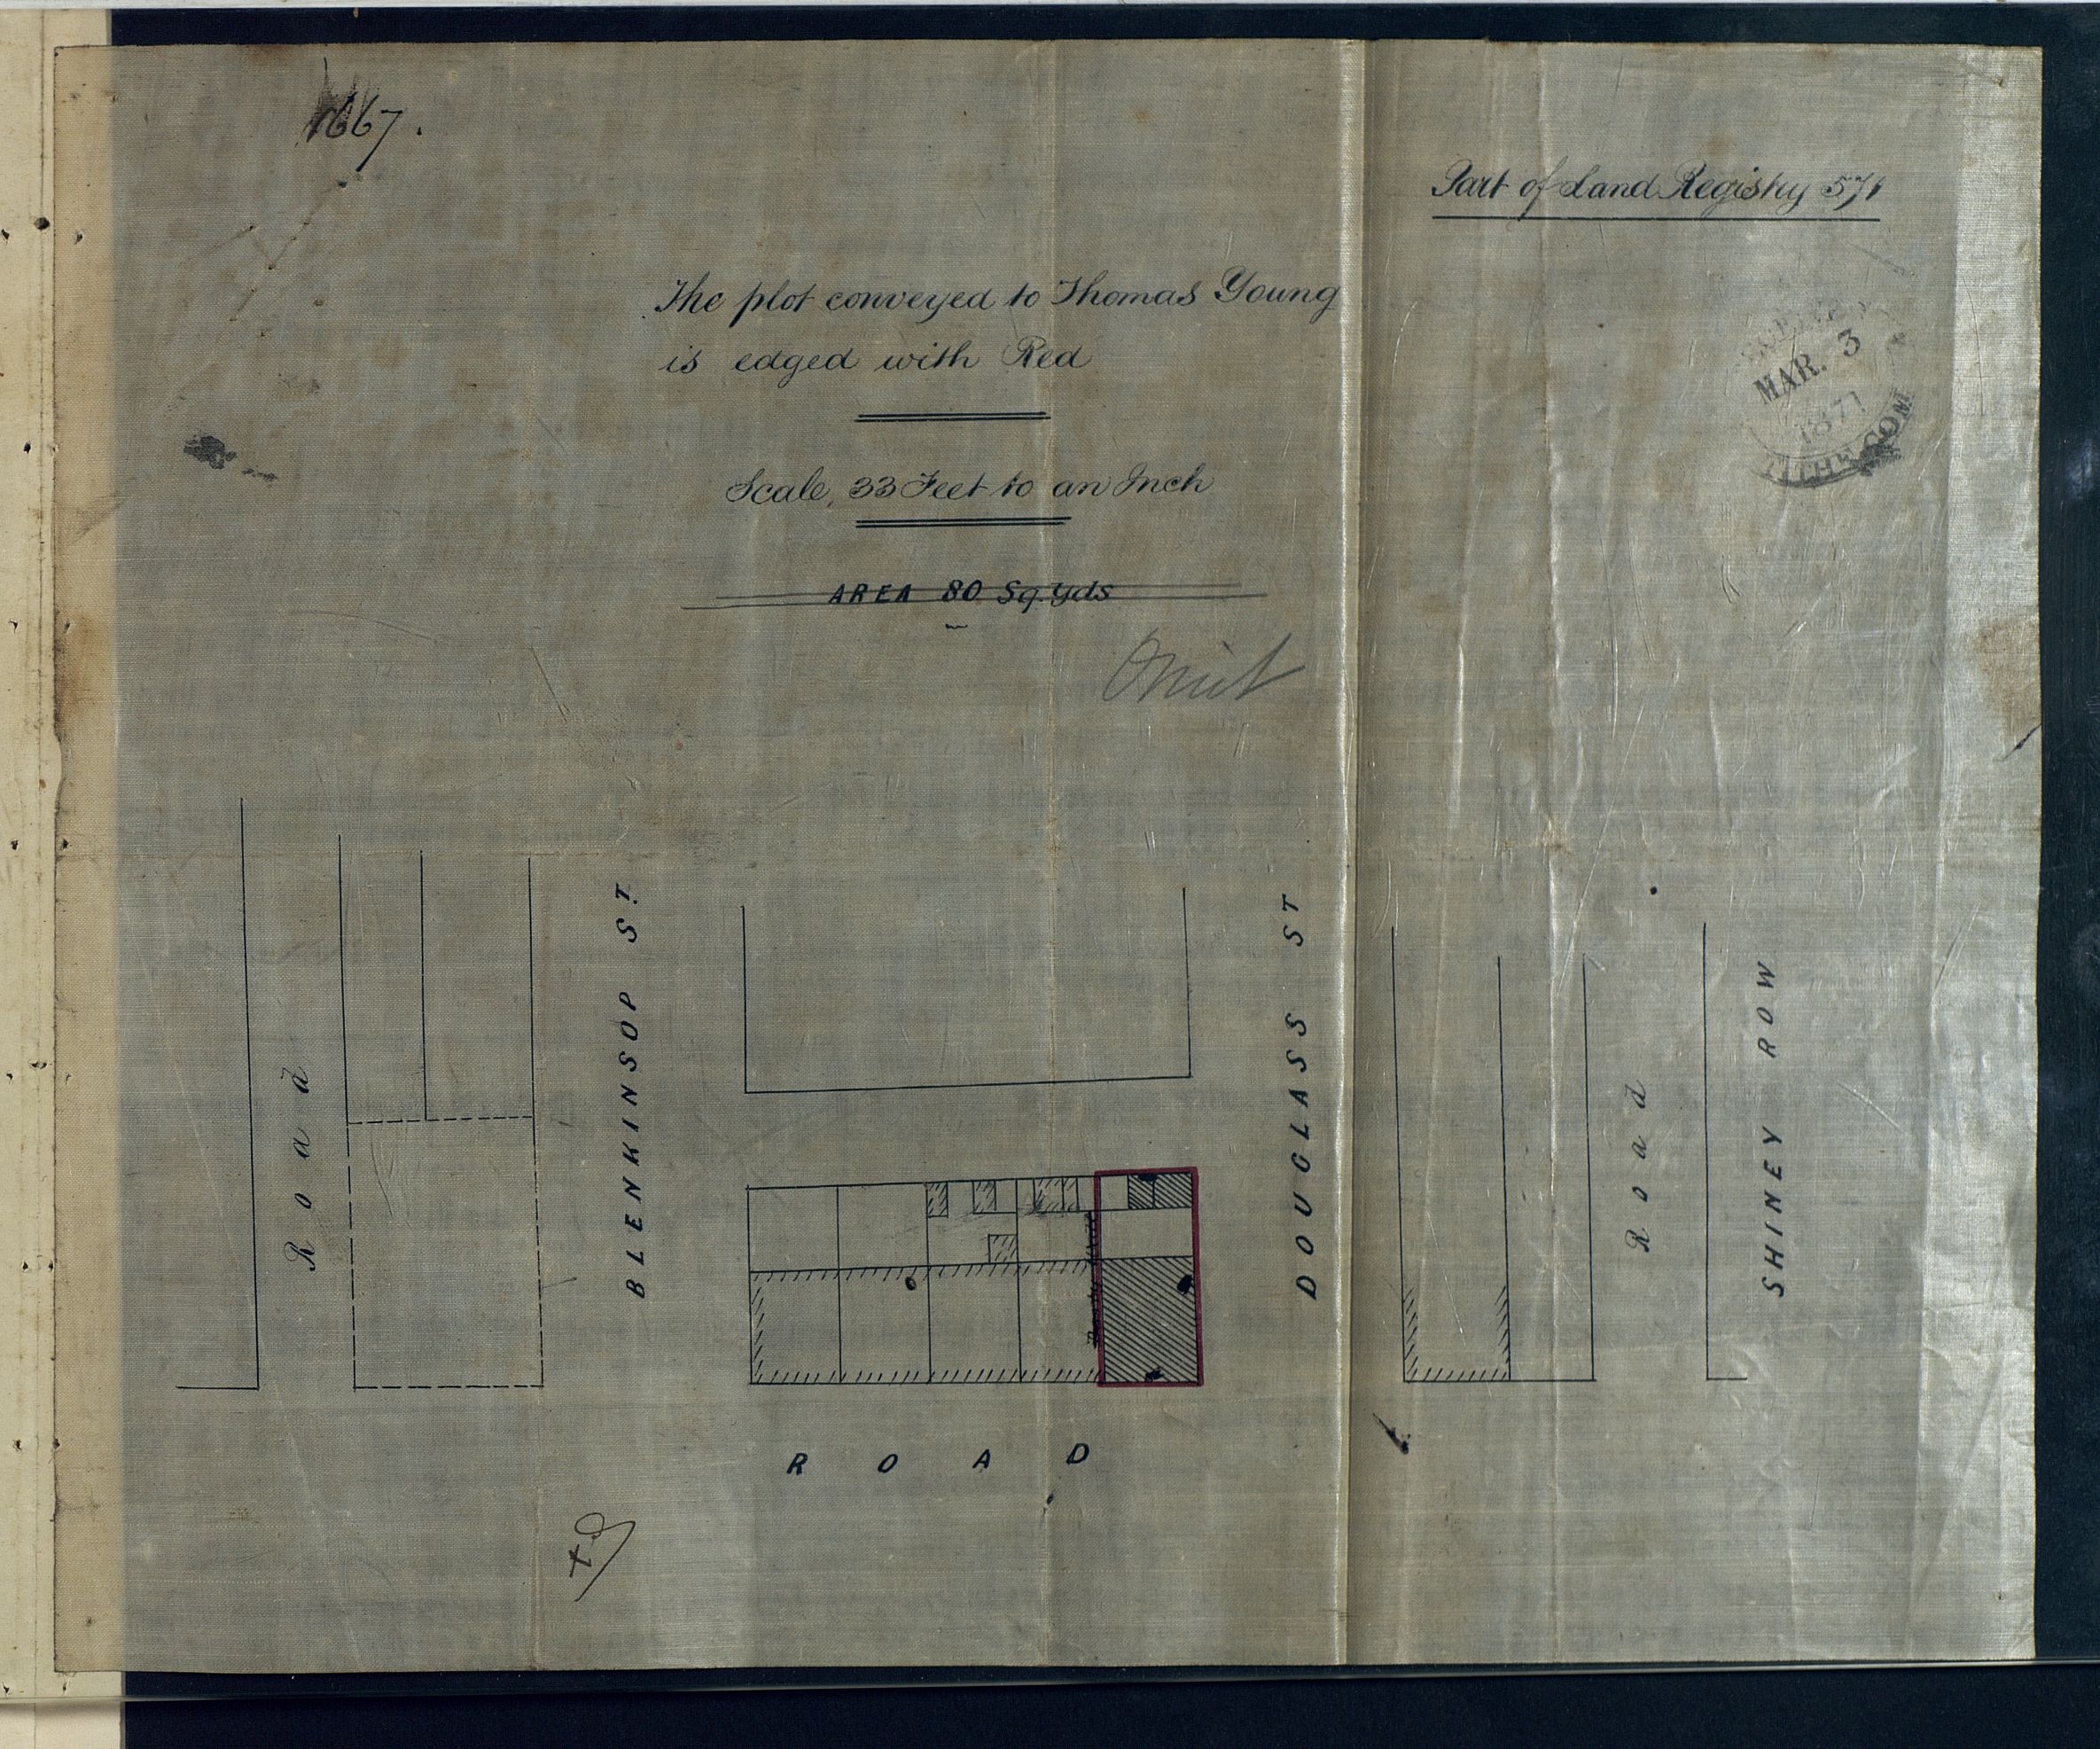 1667.
Part of Land Registry 571
The plot conveyed to Thomas Young
is edged with Red
MAR. 3
1871
TITHE COM
Scale, 33 Feet to an Inch
AREA 80 Sq. Yds
Omit
Road
BLENKINSOP ST.
DOUGLASS ST
Road
SHINEY ROW
ROAD